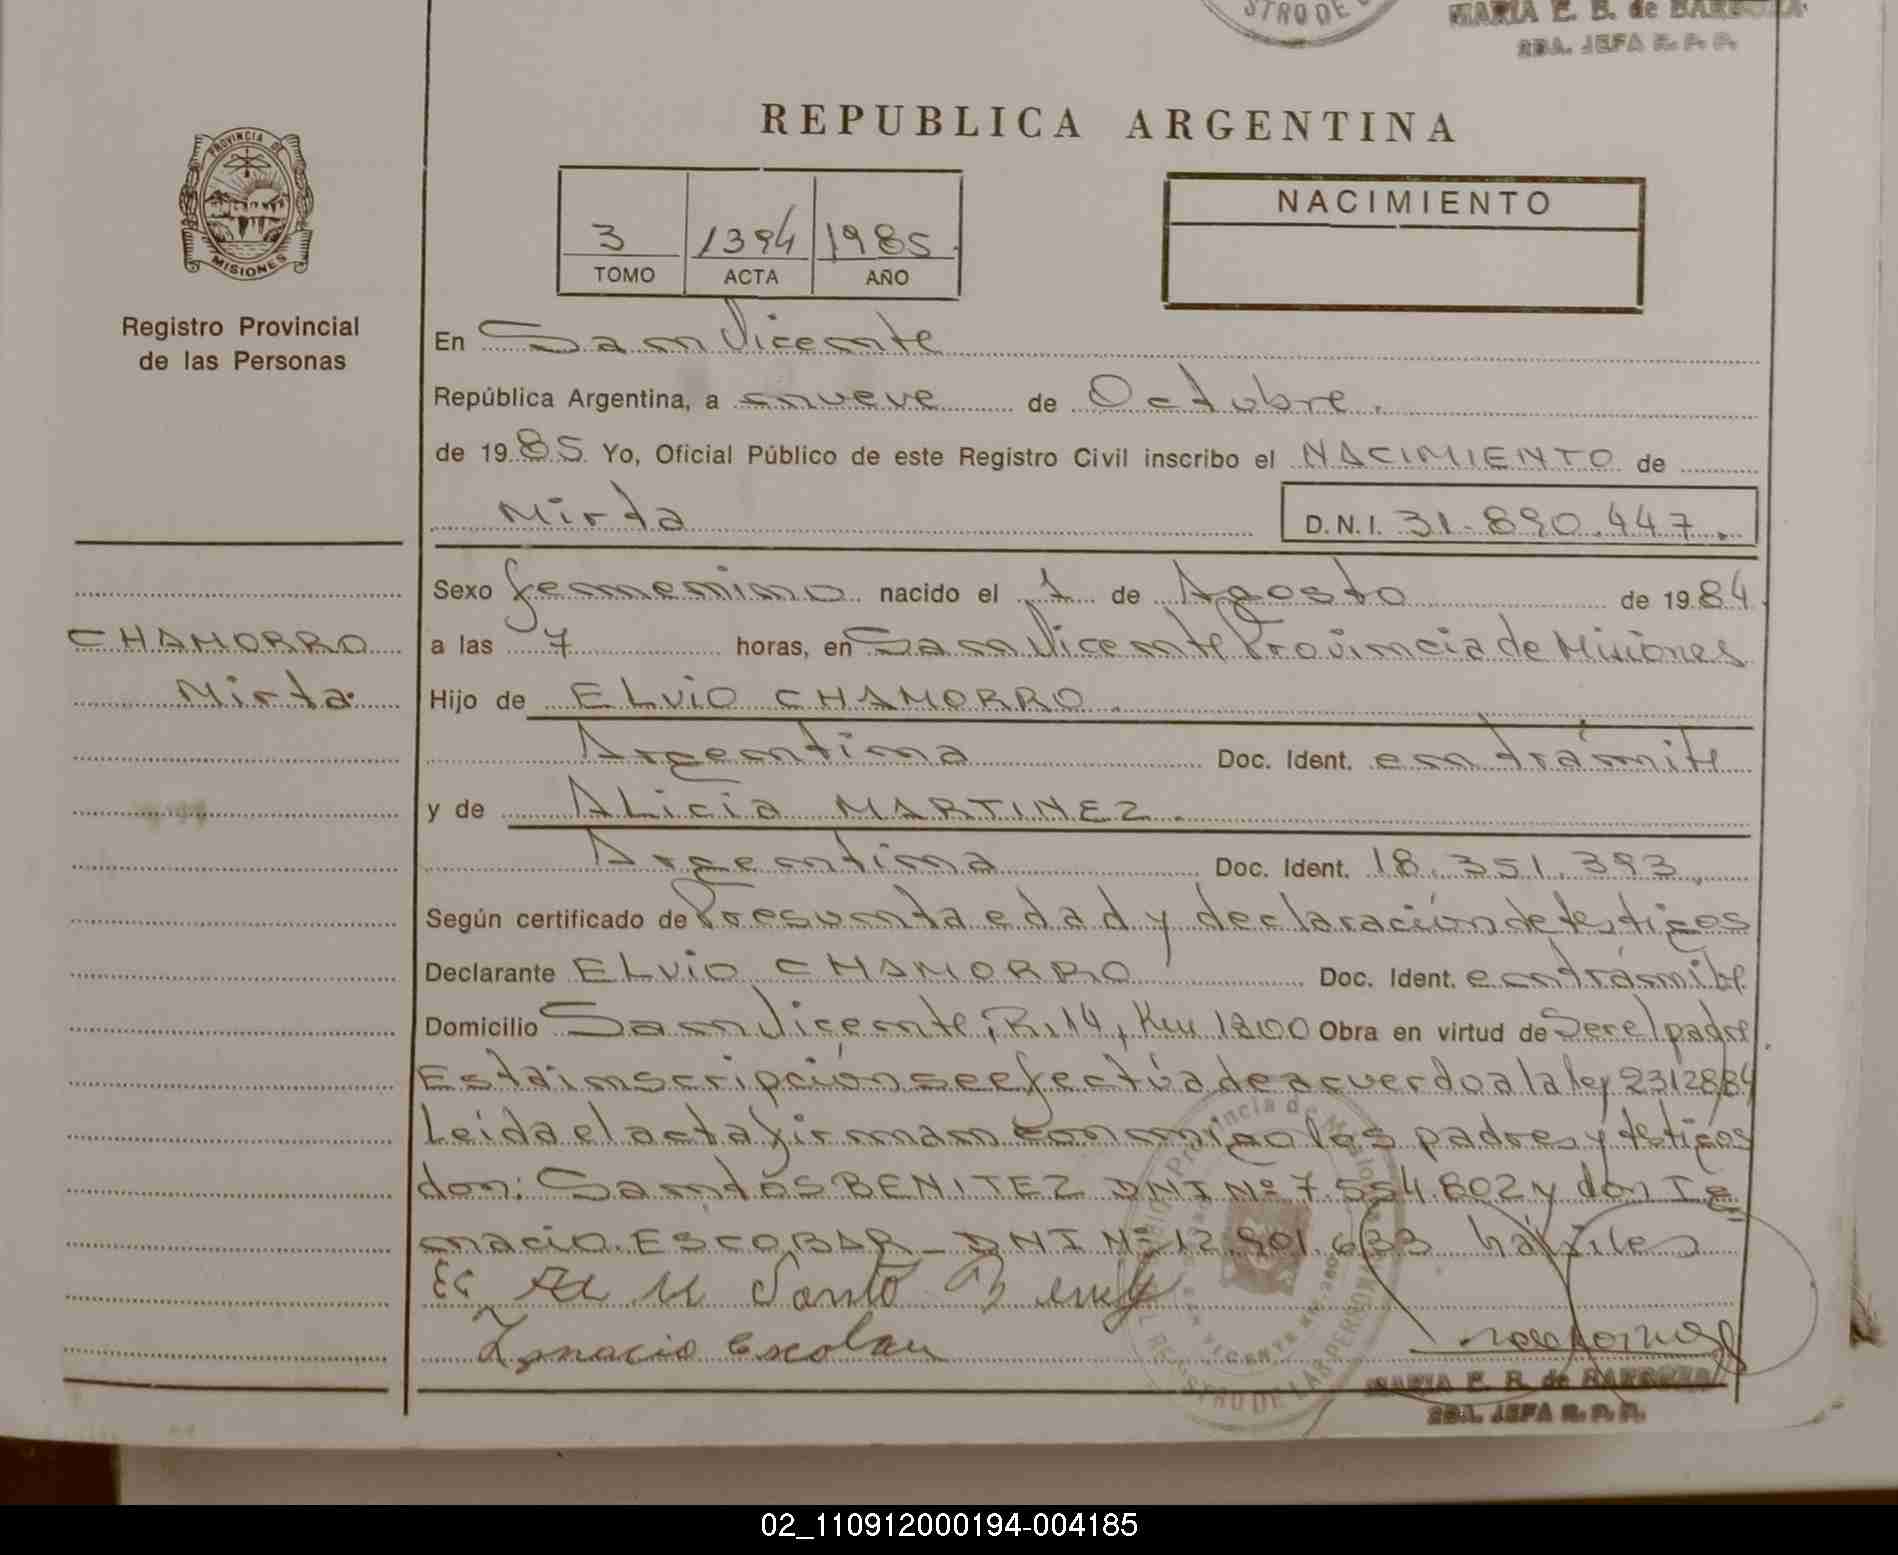 STRO DE
MARIA E. B. de BARBOZA
2DA. JEFA R. P. P.
REPUBLICA ARGENTINA
PROVINCIA DE
MISIONES
Registro Provincial
de las Personas
3 1394 1985
TOMO ACTA AÑO
NACIMIENTO
En San Vicente
República Argentina, a nueve de Octubre.
de 1985 Yo, Oficial Público de este Registro Civil inscribo el NACIMIENTO de
Mirta D.N.I. 31.890.447.
CHAMORRO
Mirta.
Sexo femenino nacido el 1 de Agosto de 1984
a las 7 horas, en San Vicente Provincia de Misiones
Hijo de ELViO CHAMORRO.
Argentina Doc. Ident. en trámite
y de ALicia MARTINEZ.
Argentina Doc. Ident. 18.351.393.
Según certificado de Presunta edad y declaración de testigos
Declarante ELViO CHAMORRO Doc. Ident. en trámite
Domicilio San Vicente, R. 14, Km 1200 Obra en virtud de Ser el padre.
Esta inscripción se efectúa de acuerdo a la ley 23128/84
Leida el acta firman conmigo los padres y testigos
don: Santos BENITEZ DNI Nº 7.554.802 y don Ig
nacio ESCOBAR_ DNI Nº 12.901.633 hábiles
EC
Ignacio Escobar
MARIA E. B. de BARBOZA
2DA. JEFA R. P. P.
02_110912000194-004185